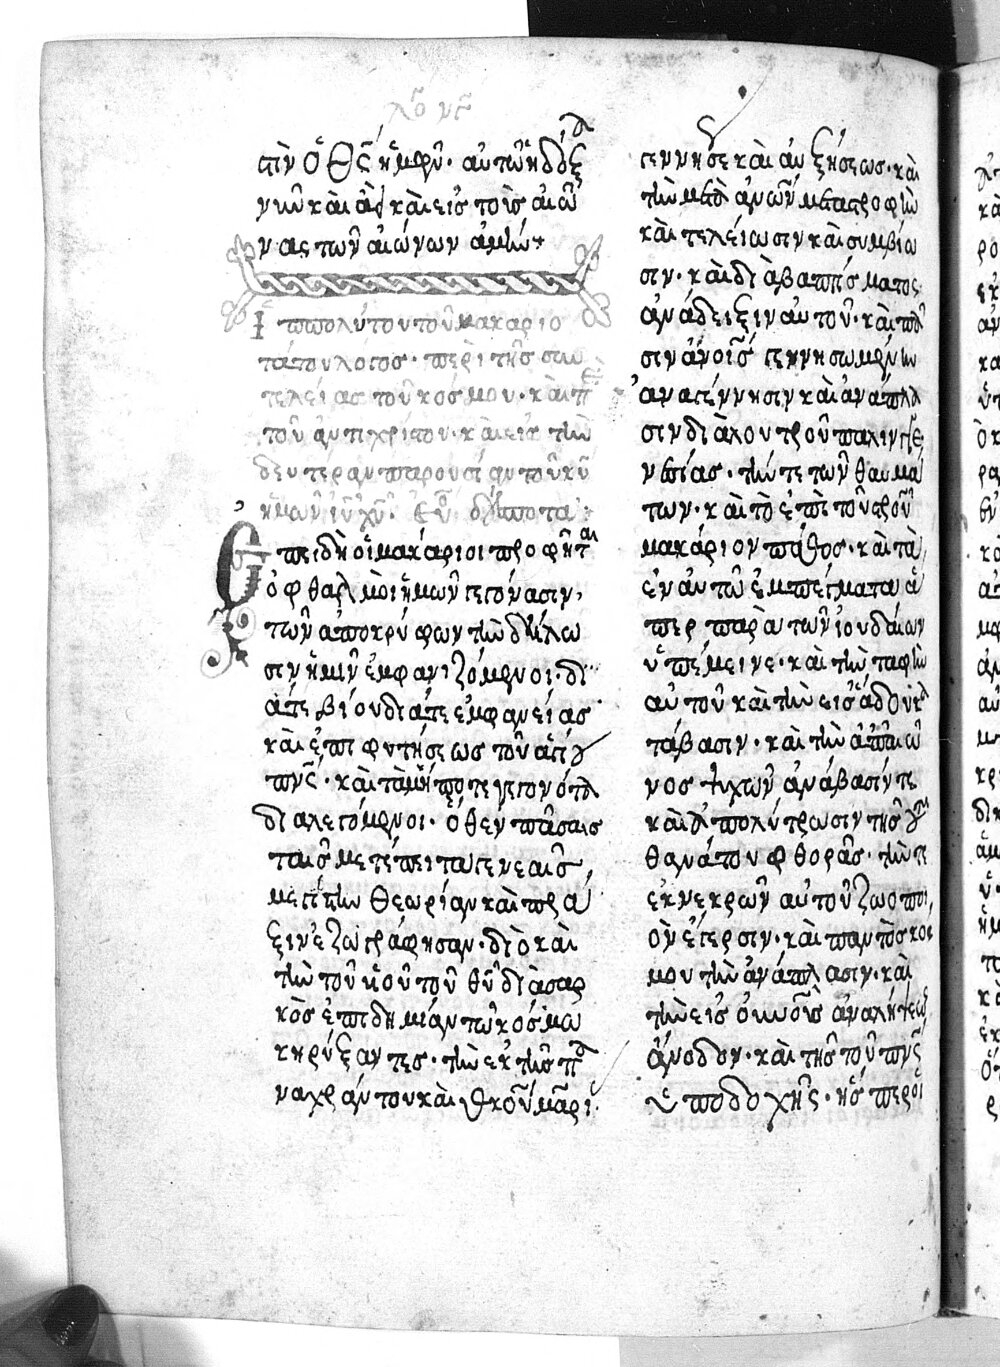 λό νς
στὶν ὁ Θς ἡμῶν· αὐτῶ ἡ δόξ
νῦν καὶ ἀεὶ καὶ εἰς τοὺς αἰῶ
νας τῶν αἰώνων ἀμήν +
Ἱππολύτου τοῦ μακαριο
τάτου λόγος· περὶ τῆς συν
τελείας τοῦ κόσμου· καὶ π
τοῦ ἀντιχρίστου· καὶ εἰς τὴν
δευτέραν παρουσίαν τοῦ κυ
ἡμῶν ιυ χυ. εὐ δέσποτα·
Ἐπειδὴ οἱ μακάριοι προφῆται
ὀφθαλμοὶ ἡμῶν γεγόνασιν,
τῶν ἀποκρύφων τὴν δήλω
σιν ἡμῖν ἐμφανιζόμενοι· δι
ά τε βίου διά τε ἐμφανείας
καὶ ἐπιφοιτήσεως τοῦ ἁγίου
πνς· καὶ τὰ μήπω τε γεγονότα
διαλεγόμενοι· ὅθεν πάσαις
ταῖς μετέπειτα γενεαῖς
μετὰ τὴν θεωρίαν καὶ πρᾶ
ξιν ἐζωγράφησαν· διὸ καὶ
τὴν τοῦ υἱοῦ τοῦ θυ διὰ σαρ
κὸς ἐπιδημίαν τῶ κόσμω
κηρύξαντες· τὴν ἐκ τῆς πα
ναχράντου καὶ θκου μαρί
γεννήσεως καὶ αὐξήσεως· καὶ
τὴν μετὰ ἀνῶν μεταστροφὴν
καὶ τελείωσιν καὶ συμβίω
σιν· καὶ διὰ βαπτίσματος
ἀνάδειξιν αὐτοῦ· καὶ πᾶ
σιν ἀνοις γεννησωμένην
ἀναγέννησιν καὶ ἀνάπλα
σιν διὰ λουτροῦ παλιγγε
νεσίας· τήν τε τῶν θαυμά
των· καὶ τὸ ἐπὶ τοῦ σροῦ
μακάριον πάθος· καὶ τὰ
ἐν αὐτῶ ἐμπτύσματα ἅ
περ παρὰ τῶν ἰουδαίων
ὑπέμεινε· καὶ τὴν ταφὴν
αὐτοῦ καὶ τὴν εἰς ἅδου κα
τάβασιν· καὶ τὴν ἀπ αἰῶ
νος ψυχῶν ἀνάβασίν τε
καὶ ἀπολύτρωσιν τῆς τοῦ
θανάτου φθορᾶς· τήν τε
ἐκ νεκρῶν αὐτοῦ ζωοποι
ὸν ἔγερσιν· καὶ παντὸς κόσ
μου τὴν ἀνάπλασιν· καὶ
τὴν εἰς οὐνοὺς ἀναλήψεως
ἄνοδον· καὶ τῆς τοῦ πνς
ὑποδοχῆς· ἧς περ οἱ